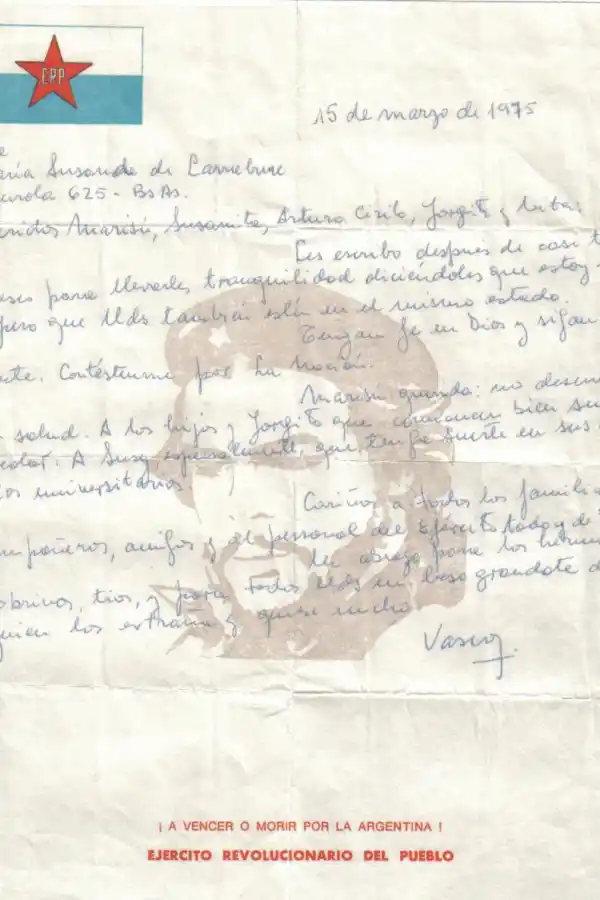 ERP
15 de marzo de 1975
Susana de de Larrabure
625 - Bs As.
Marisú, Susanita, Arturo Cirilo, Jorgito y
Les escribo después de casi
para llevarles tranquilidad diciéndoles que estoy
pero que Uds también estén en el mismo estado.
Tengan fe en Dios y sigan
Contéstenme por La Nación.
Marisú querida: no
salud. A los hijos y Jorgito que comiencen bien su
A Susy especialmente, que tenga suerte en sus
universitarios
Cariños a todos los
amigos y al personal del Ejército todo y de
Un abrazo para los
tíos, y para todos Uds un beso grandote
quien los extraña y quiere mucho
Vasco
¡ A VENCER O MORIR POR LA ARGENTINA !
EJERCITO REVOLUCIONARIO DEL PUEBLO